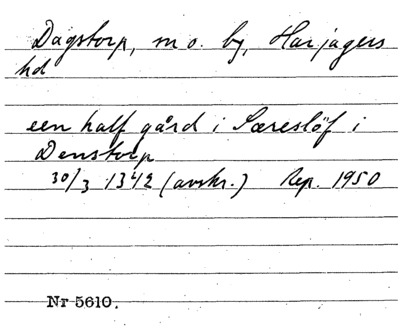 Dagstorp, sn o. by, Harjagers
hd
een half gård i Særeslöf i
Denstorp
30/3 1342 (avskr.) Rep. 1950
Nr 5610.